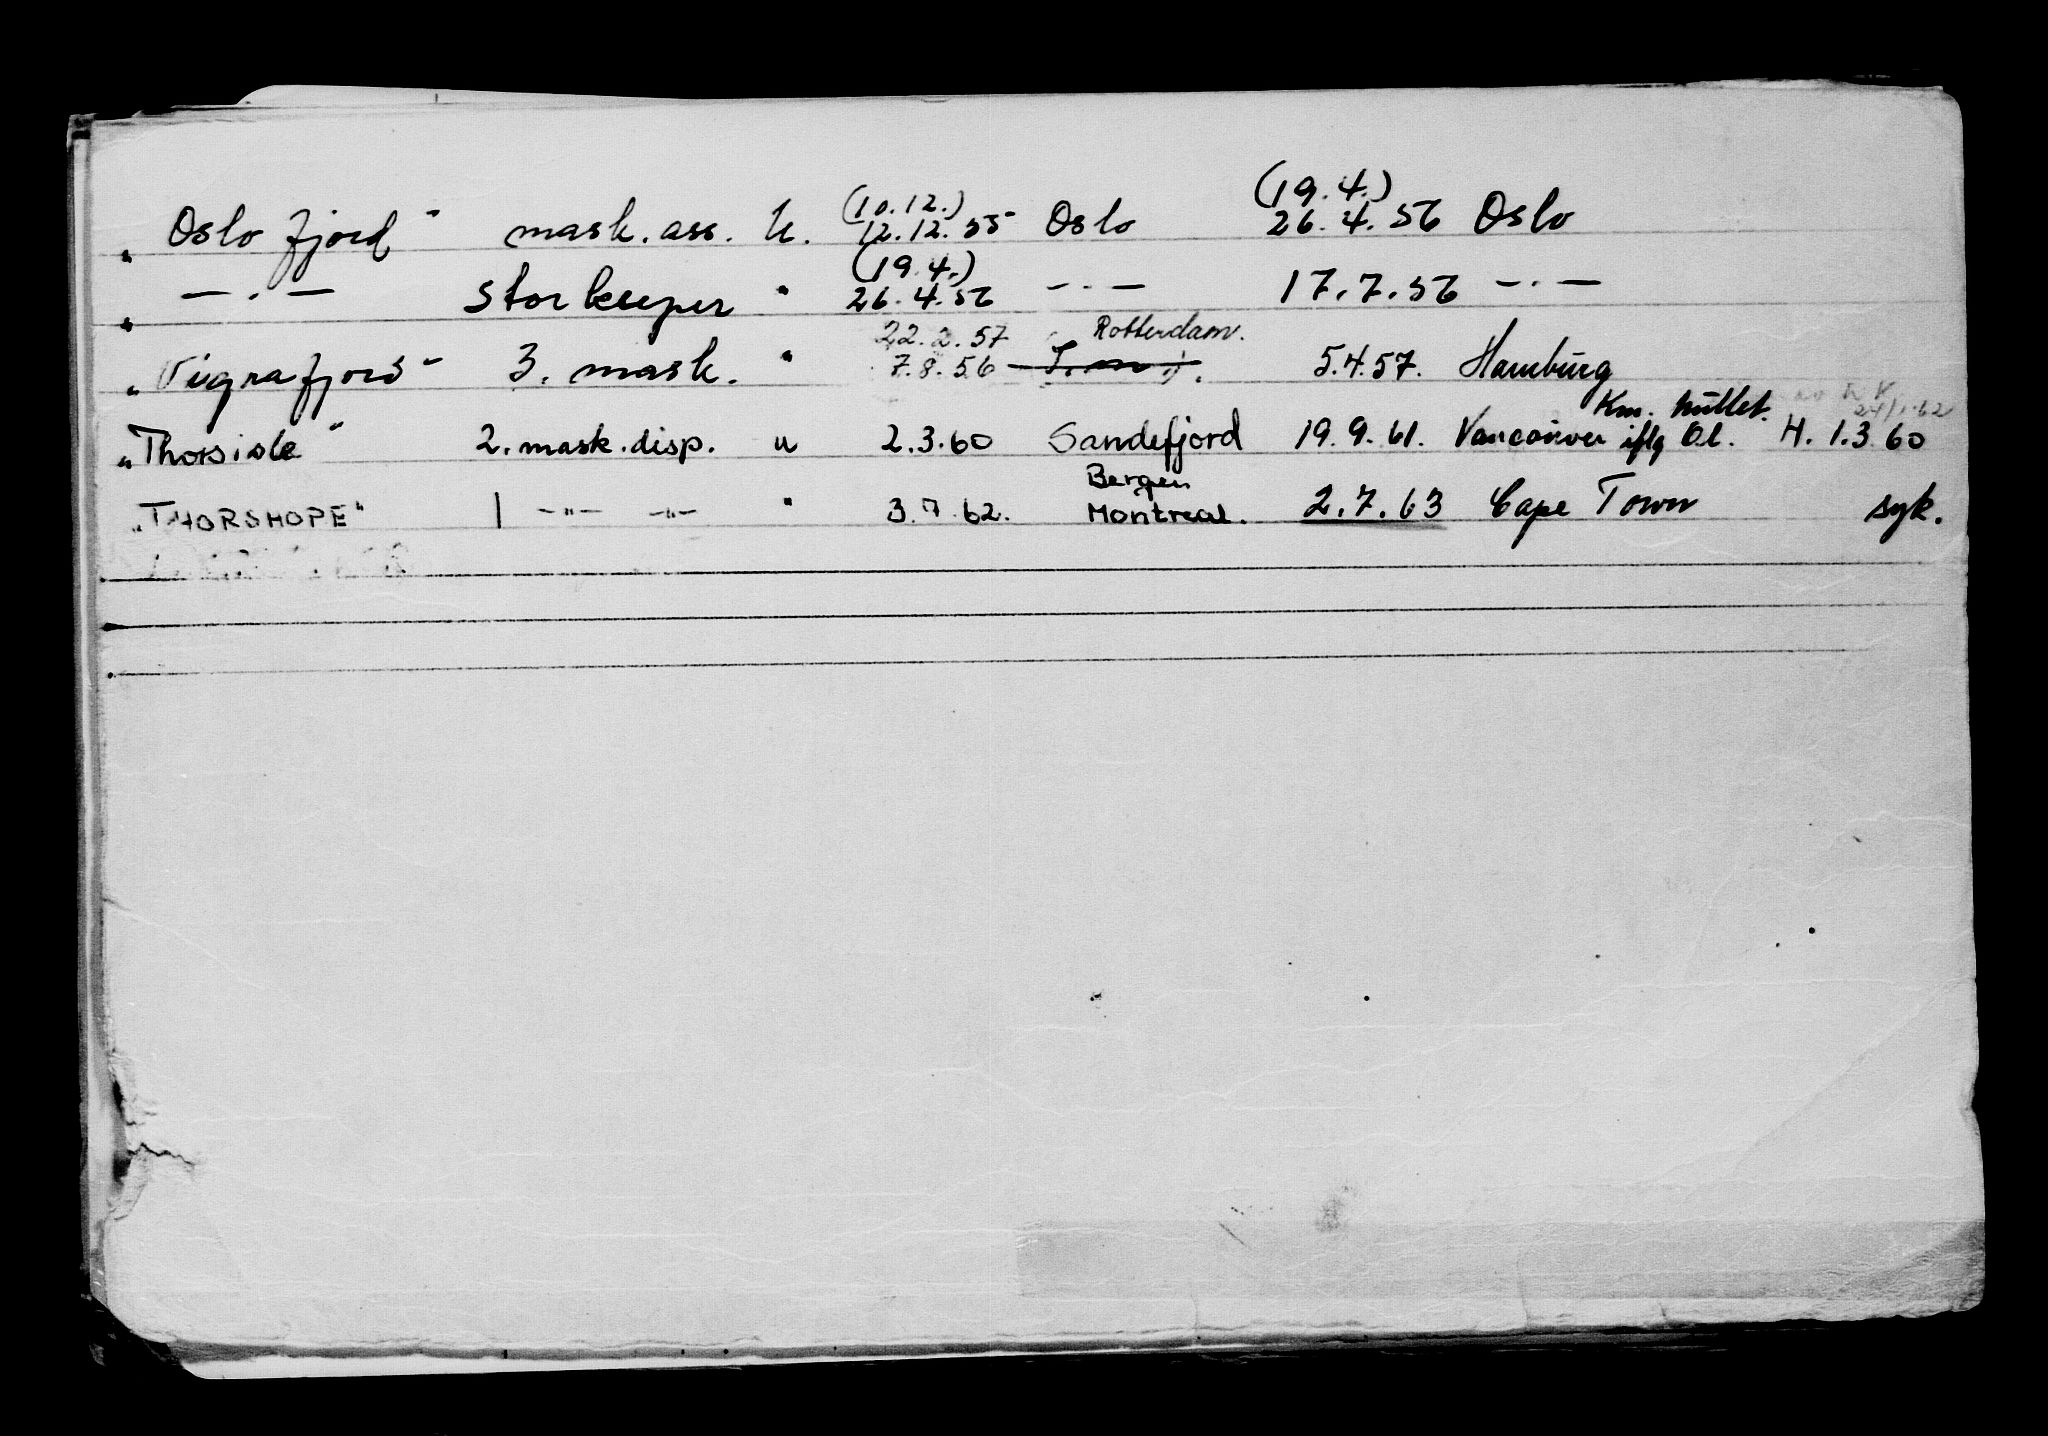 (10.12.) (19.4.)
„Oslofjord" mask. ass. u. 12.12.55 Oslo 26.4.56 Oslo
(19.4.)
„ — . — storkeeper " 26.4.56 — . — 17.7.56 — . —
22.2.57 Rotterdam.
„Vigrafjord" 3. mask. " 7.8.56 5.4.57. Hamburg
Km. nullet. 24/1-62
„Thorsisle" 2. mask. disp. u 2.3.60 Sandefjord 19.9.61. Vancouver iflg Ol. H. 1.3.60
Bergen
„THORSHOPE" 1 —"— —"— " 3.7.62. Montreal. 2.7.63 Cape Town syk.